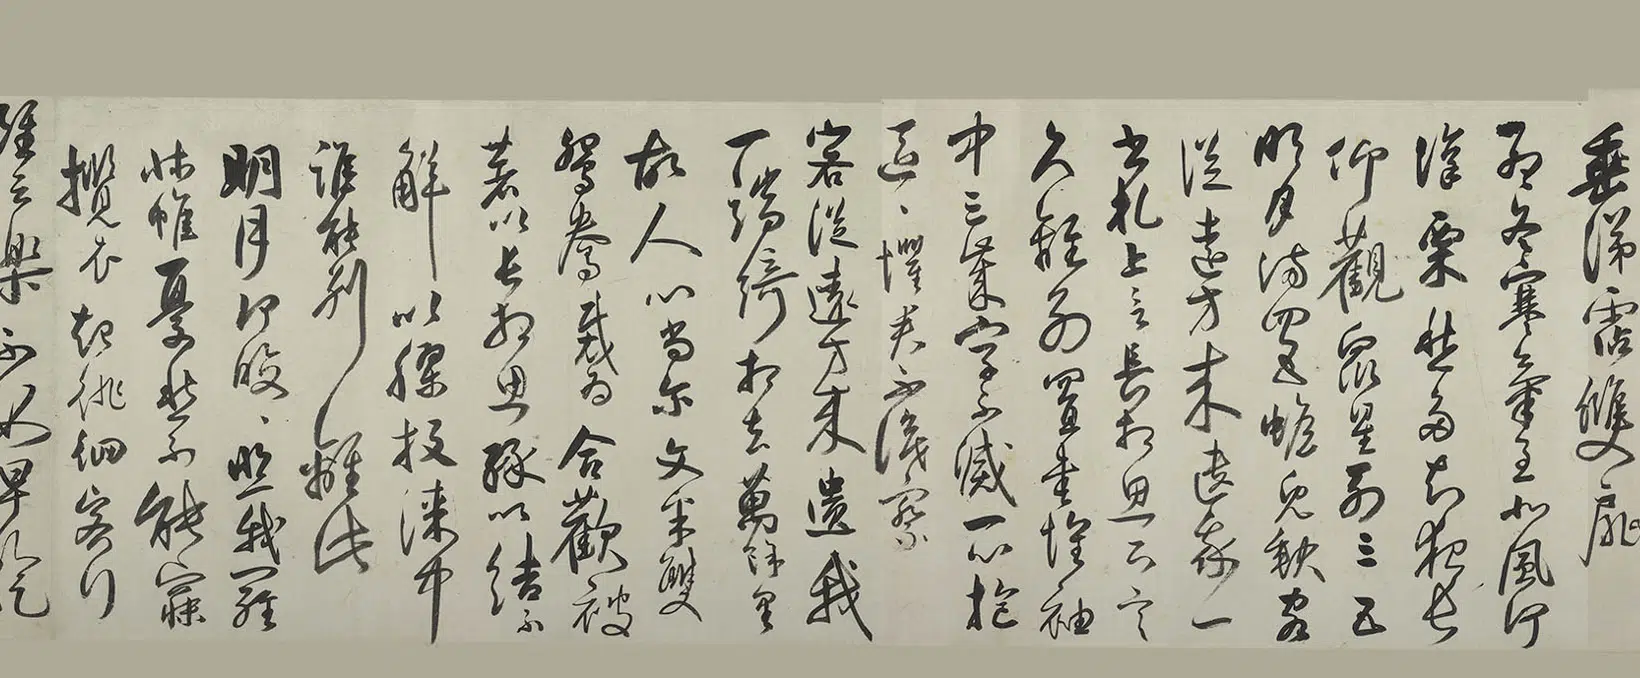 垂涕霑雙扉
孟冬寒氣至北風何
慘栗愁多知夜長
仰觀眾星列三五
明月滿四五蟾兔缺客
從遠方來遺我一
書札上言長相思下言
久離別置書懷袖
中三歲字不滅一心抱
區々懼君不識察
客從遠方來遺我
一端綺相去萬餘里
故人心尚爾文采雙
鴛鴦裁為合歡被
著以長相思緣以結不
解以膠投漆中
誰能別離此
明月何皎々照我羅
牀帷憂愁不能寐
攬衣起徘徊客行
雖云樂不如早旋